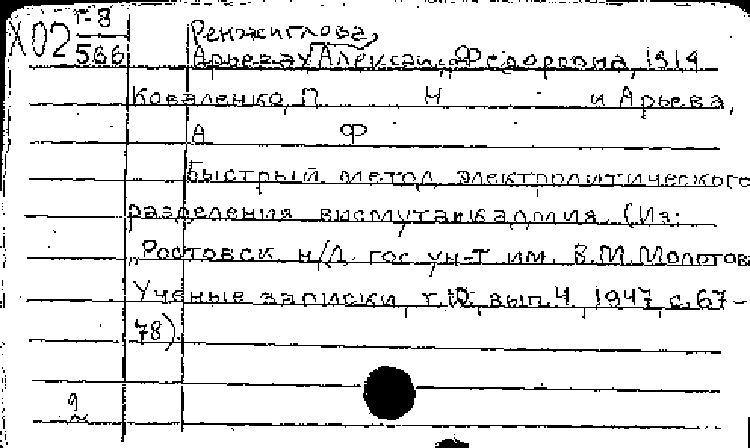 X02 Г-8
566
Ренжиглова,
Арьева, Александра Федоровна, 1914
Коваленко, П Н и Арьева,
А Ф
Быстрый метод электролитического
разделения висмута и кадмия. (Из:
„Ростовск. н/Д. гос. ун-т им. В.М. Молотова
Ученые записки, т.10, вып.4, 1947, с.67-
78)